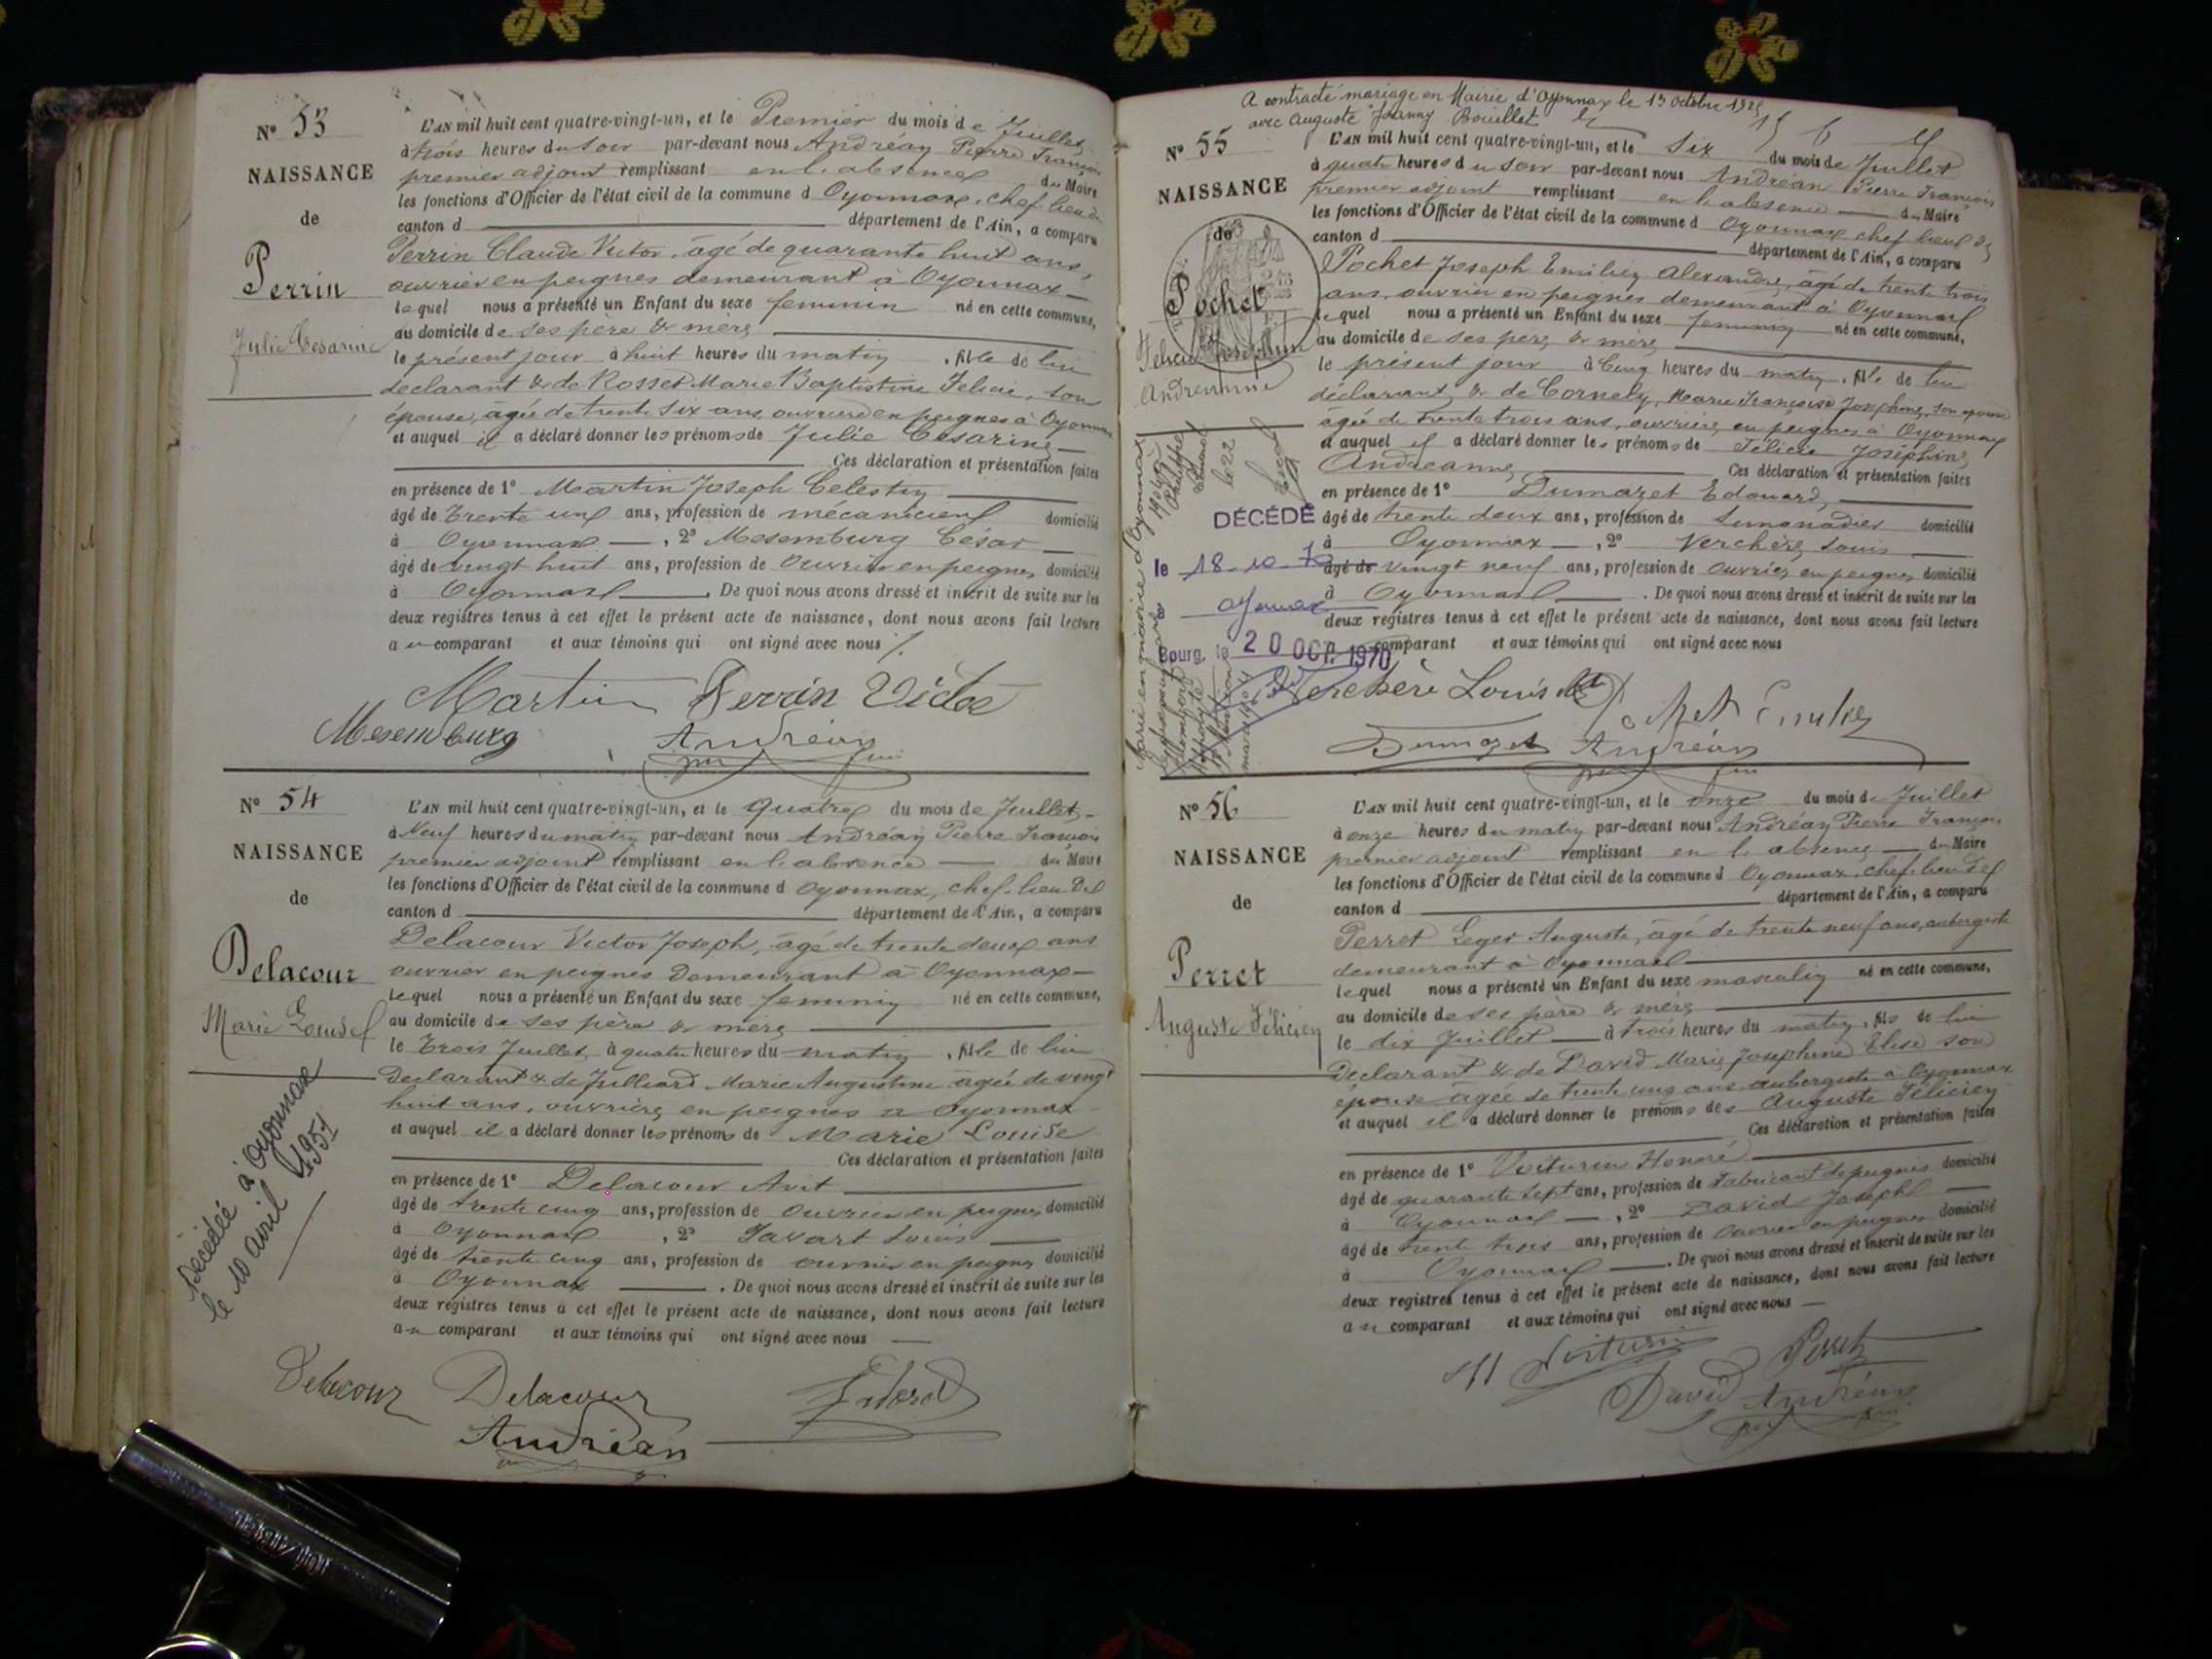 N° 53
NAISSANCE
de
Perrin
Julie Césarine
L'AN mil huit cent quatre-vingt-un, et le Premier du mois de Juillet
à trois heures du soir par-devant nous Andréan Pierre François
premier adjoint remplissant en l'absence du Maire
les fonctions d'Officier de l'état civil de la commune d Oyonnax, chef-lieu de
canton d département de l'Ain, a comparu
Perrin Claude Victor, âgé de quarante huit ans,
ouvrier en peignes demeurant à Oyonnax
lequel nous a présenté un Enfant du sexe féminin né en cette commune,
au domicile de ses père & mère
le présent jour à huit heures du matin, fille de lui
déclarant & de Rosset Marie Baptistine Félicie, son
épouse, âgée de trente six ans, ouvrière en peignes à Oyonnax
et auquel il a déclaré donner les prénoms de Julie Césarine
Ces déclaration et présentation faites
en présence de 1° Martin Joseph Célestin
âgé de trente un ans, profession de mécanicien domicilié
à Oyonnax, 2° Mesemburg César
âgé de vingt huit ans, profession de ouvrier en peignes domicilié
à Oyonnax. De quoi nous avons dressé et inscrit de suite sur les
deux registres tenus à cet effet le présent acte de naissance, dont nous avons fait lecture
au comparant et aux témoins qui ont signé avec nous
Martin Perrin Victor
Mesemburg Andréan
N° 54
NAISSANCE
de
Delacour
Marie Louise
Décédée à Oyonnax
le 10 avril 1954
L'AN mil huit cent quatre-vingt-un, et le quatre du mois de Juillet
à Neuf heures du matin par-devant nous Andréan Pierre François
premier adjoint remplissant en l'absence du Maire
les fonctions d'Officier de l'état civil de la commune d Oyonnax, chef-lieu de
canton d département de l'Ain, a comparu
Delacour Victor Joseph, âgé de trente deux ans
ouvrier en peignes demeurant à Oyonnax
lequel nous a présenté un Enfant du sexe féminin né en cette commune,
au domicile de ses père & mère
le trois Juillet à quatre heures du matin, fille de lui
Déclarant & de Julliard Marie Augustine âgée de vingt
huit ans, ouvrière en peignes à Oyonnax
et auquel il a déclaré donner les prénoms de Marie Louise
Ces déclaration et présentation faites
en présence de 1° Delacour Avit
âgé de trente cinq ans, profession de ouvrier en peignes domicilié
à Oyonnax, 2° Louis
âgé de trente cinq ans, profession de ouvrier en peignes domicilié
à Oyonnax. De quoi nous avons dressé et inscrit de suite sur les
deux registres tenus à cet effet le présent acte de naissance, dont nous avons fait lecture
au comparant et aux témoins qui ont signé avec nous
Delacour Delacour
Andréan
A contracté mariage en Mairie d'Oyonnax le 13 octobre
avec Auguste Joanny Bouillet
N° 55
NAISSANCE
de
Pochet
Félicie Joséphine
Andréanne
DÉCÉDÉ
le 18-10-
à Oyonnax
Bourg, le 20 OCT. 1970
L'AN mil huit cent quatre-vingt-un, et le six du mois de Juillet
à quatre heures du soir par-devant nous Andréan Pierre François
premier adjoint remplissant en l'absence du Maire
les fonctions d'Officier de l'état civil de la commune d Oyonnax chef lieu de
canton d département de l'Ain, a comparu
Pochet Joseph Emilien Alexandre, âgé de trente trois
ans, ouvrier en peignes demeurant à Oyonnax
lequel nous a présenté un Enfant du sexe féminin né en cette commune,
au domicile de ses père & mère
le présent jour à cinq heures du matin, fille de lui
déclarant & de Cornely, Marie Françoise Joséphine, son épouse
âgée de trente trois ans, ouvrière en peignes à Oyonnax
et auquel il a déclaré donner les prénoms de Félicie Joséphine
Andréanne Ces déclaration et présentation faites
en présence de 1° Dumazet Edouard,
âgé de trente deux ans, profession de limonadier domicilié
à Oyonnax, 2° Verchère Louis
âgé de vingt neuf ans, profession de ouvrier en peignes domicilié
à Oyonnax. De quoi nous avons dressé et inscrit de suite sur les
deux registres tenus à cet effet le présent acte de naissance, dont nous avons fait lecture
au comparant et aux témoins qui ont signé avec nous
Verchère Louis
Dumazet Andréan
N° 56
NAISSANCE
de
Perret
Auguste Félicien
L'AN mil huit cent quatre-vingt-un, et le onze du mois de Juillet
à onze heures du matin par-devant nous Andréan Pierre François
premier adjoint remplissant en l'absence du Maire
les fonctions d'Officier de l'état civil de la commune d Oyonnax, chef-lieu de
canton d département de l'Ain, a comparu
Perret Leger Auguste, âgé de trente neuf ans, aubergiste
demeurant à Oyonnax
lequel nous a présenté un Enfant du sexe masculin né en cette commune,
au domicile de ses père & mère
le dix Juillet à trois heures du matin, fils de lui
Déclarant & de David Marie Joséphine Elise son
épouse âgée de trente cinq ans aubergiste à Oyonnax
et auquel il a déclaré donner le prénoms des Auguste Félicien
Ces déclaration et présentation faites
en présence de 1° Voiturin Honoré
âgé de quarante sept ans, profession de fabricant de peignes domicilié
à Oyonnax, 2° David Joseph
âgé de trente trois ans, profession de ouvrier en peignes domicilié
à Oyonnax. De quoi nous avons dressé et inscrit de suite sur les
deux registres tenus à cet effet le présent acte de naissance, dont nous avons fait lecture
au comparant et aux témoins qui ont signé avec nous
Voiturin Perret
David Andréan